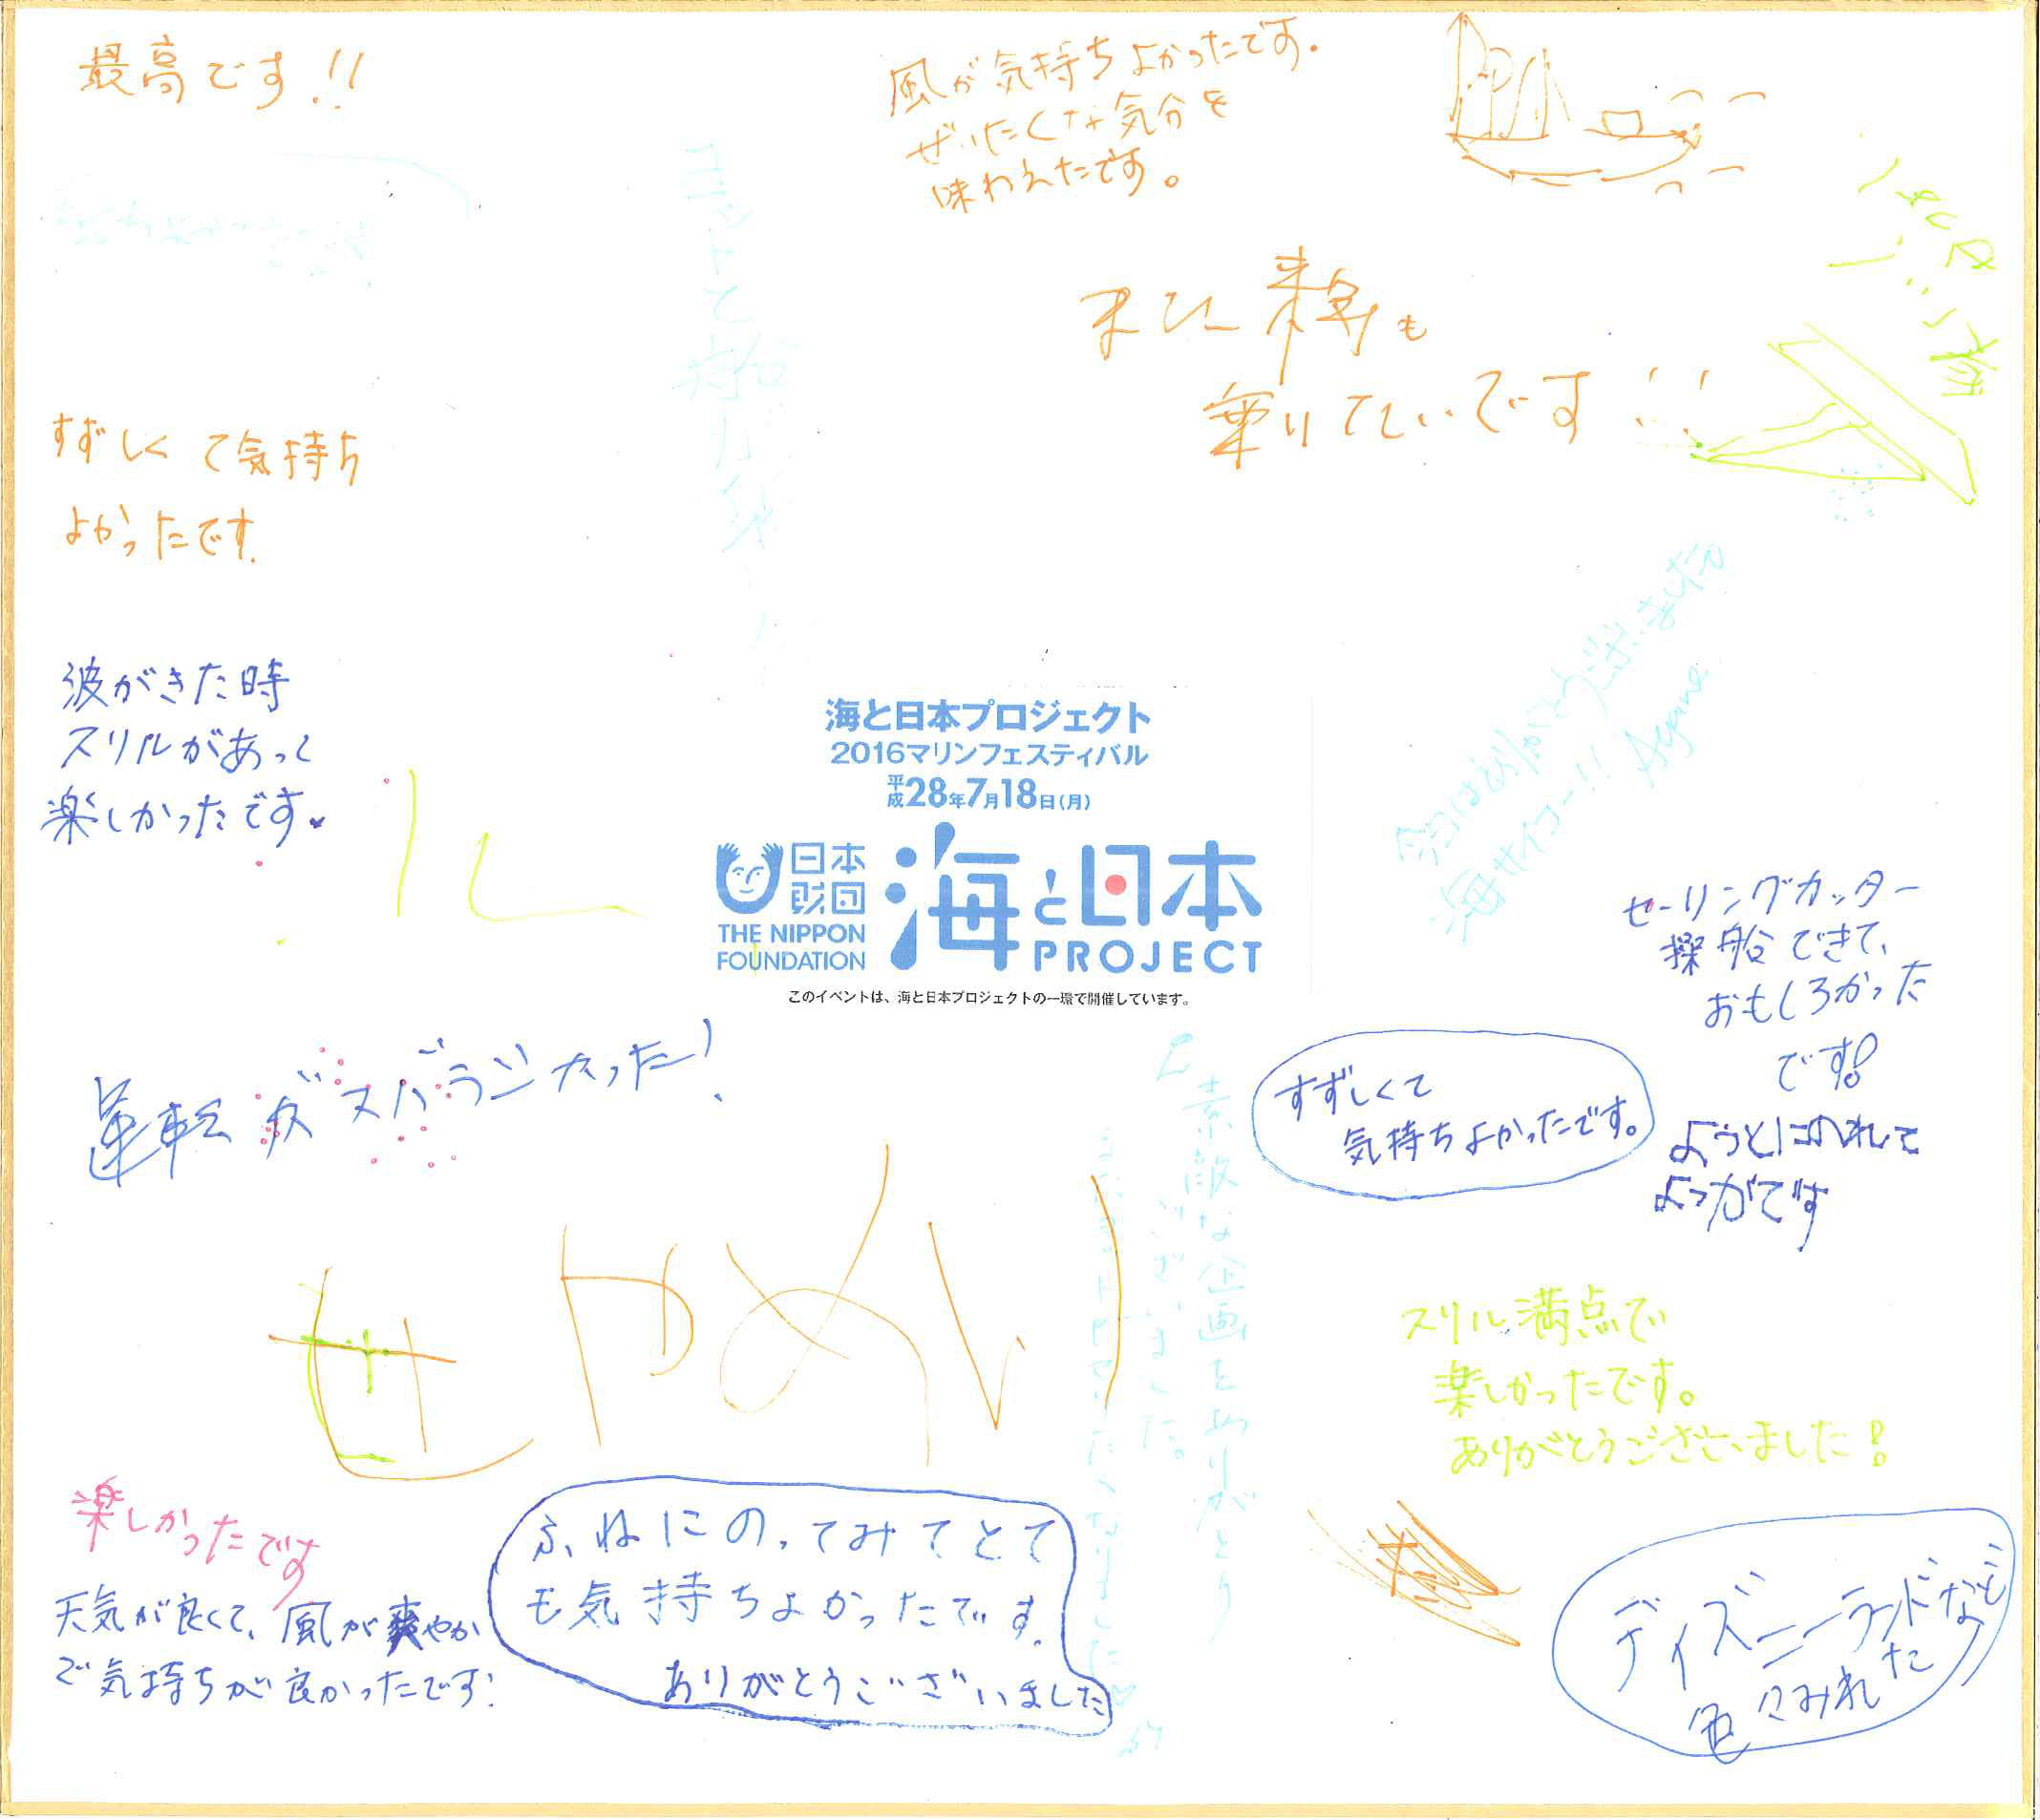 最高です!!
風が気持ちよかったです。
ぜいたくな気分を
味わえたです。
また来年も
乗りたいです!!
すずしくて気持ち
よかったです.
波がきた時
スリルがあって
楽しかったです。
海と日本プロジェクト
2016マリンフェスティバル
平成28年7月18日(月)
日本財団
THE NIPPON
FOUNDATION
海と日本
PROJECT
このイベントは、海と日本プロジェクトの一環で開催しています。
今日はありがとうございました
海サイコー!! Ayane
セーリングカッター
操船できて、
おもしろかった
です!
運転がスバラシかった!
すずしくて
気持ちよかったです。
ようとにのれて
よっかです
素敵な企画をありがとう
ございました。
スリル満点で
楽しかったです。
ありがとうございました!
楽しかったです
天気が良くて、風が爽やか
で気持ちが良かったです!
ふねにのってみてとて
も気持ちよかったです.
ありがとうございました
ディズニーランドなど
色々みれた